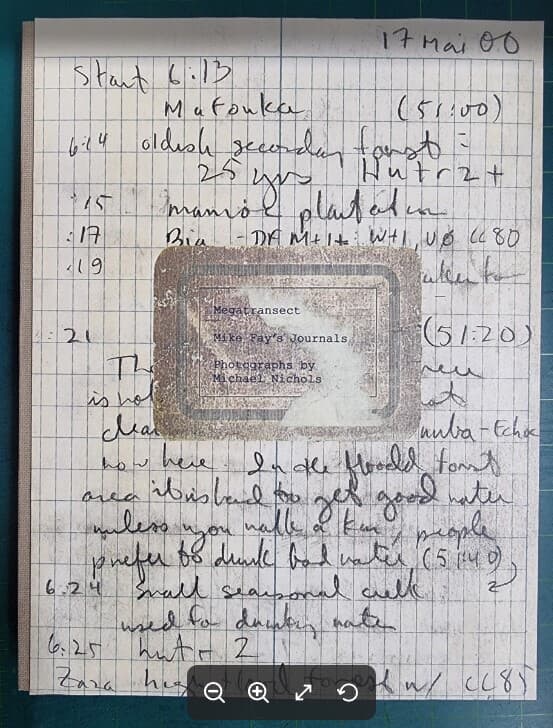 17 Mai 00
Start 6:13
Matouka (51:00)
6:14 oldish secondary forest =
25 yrs Hutr 2+
:15 manioc plantation
:17 Bia - DA M+1+: W+1, U∅ CC 80
:19
:21 (51:20)
Megatransect
Mike Fay's Journals
Photographs by
Michael Nichols
Th
is not
clea -Echo
now here. In the floodd forest
area it is hard to get good water
unless you walk a km, people
prefer to drink bad water (51:49)
6:24 small seasonal creek
used for drinking water
6:25 hutr 2
Zara forest w/ CC 85